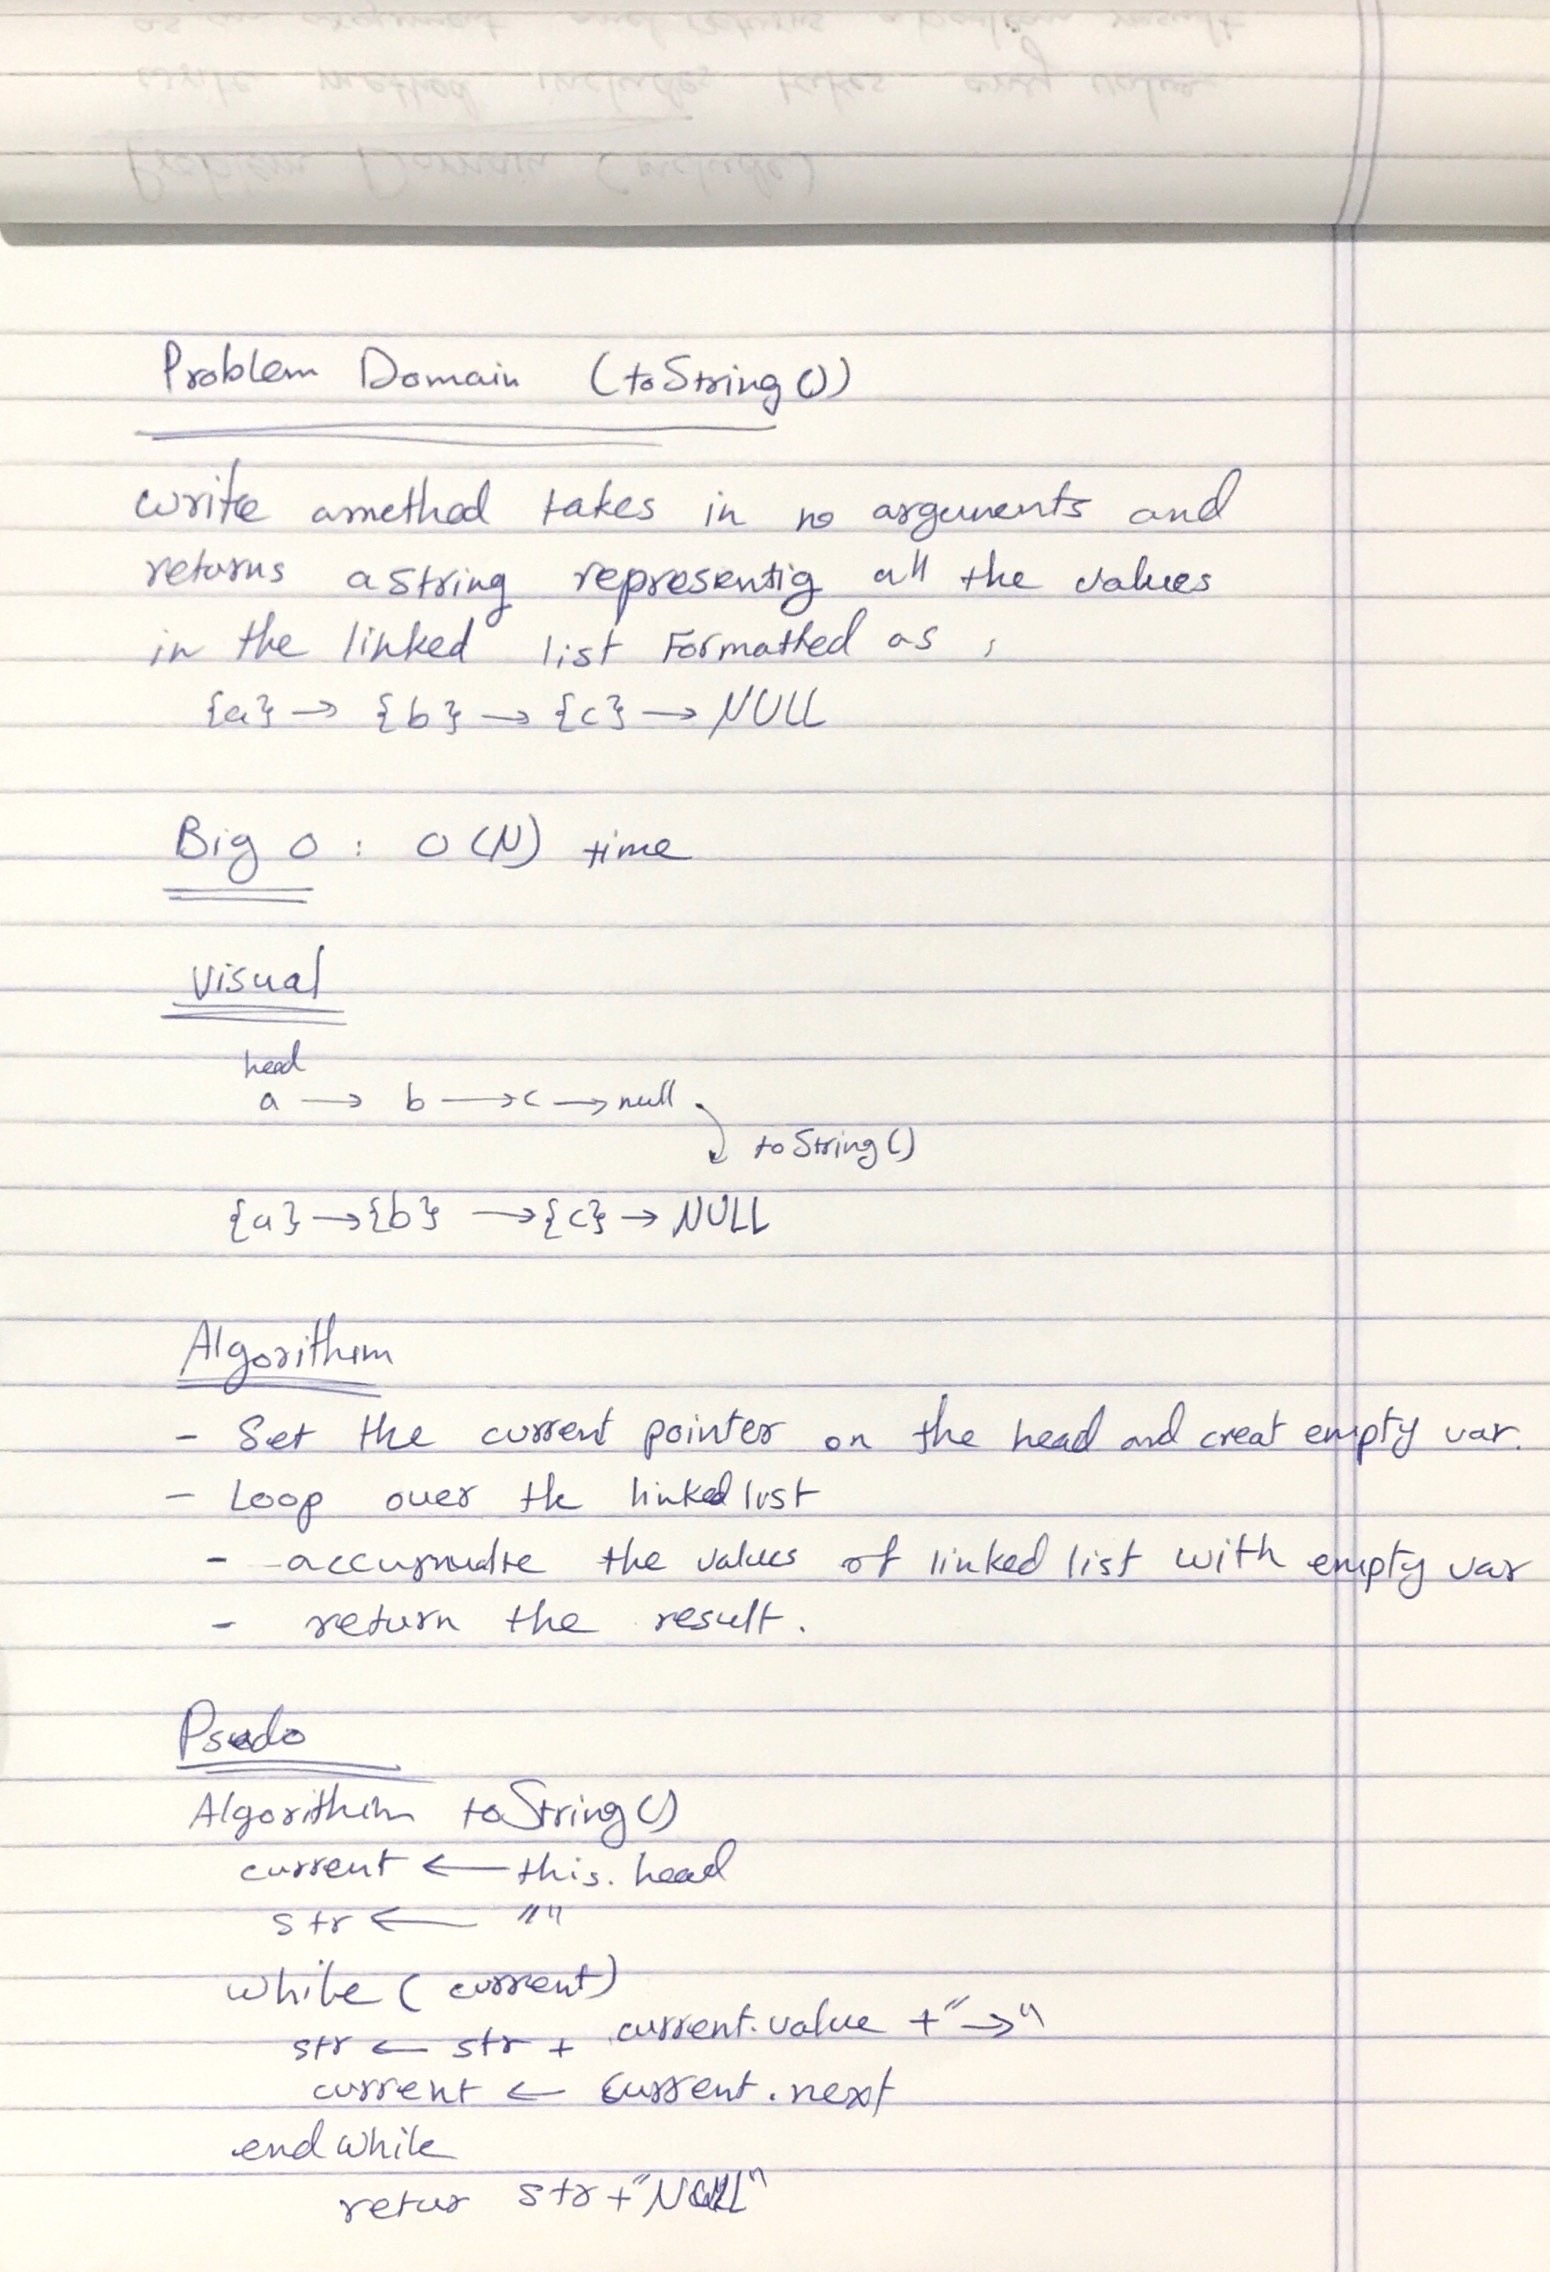 Problem Domain (toString())
write amethod takes in no arguments and
returns a string representig all the values
in the linked list Formatted as ,
{a} → {b} → {c} → NULL
Big O : O(N) time
Visual
head
a → b → c → null
toString()
{a} → {b} → {c} → NULL
Algorithim
- Set the current pointer on the head and creat empty var.
- Loop over the linked list
- the values of linked list with empty var
- return the result.
Psudo
Algorithim toString()
current ← this.head
str ← ""
while (current)
str ← str + current.value + "→"
current ← current.next
end while
retur str + "NULL"